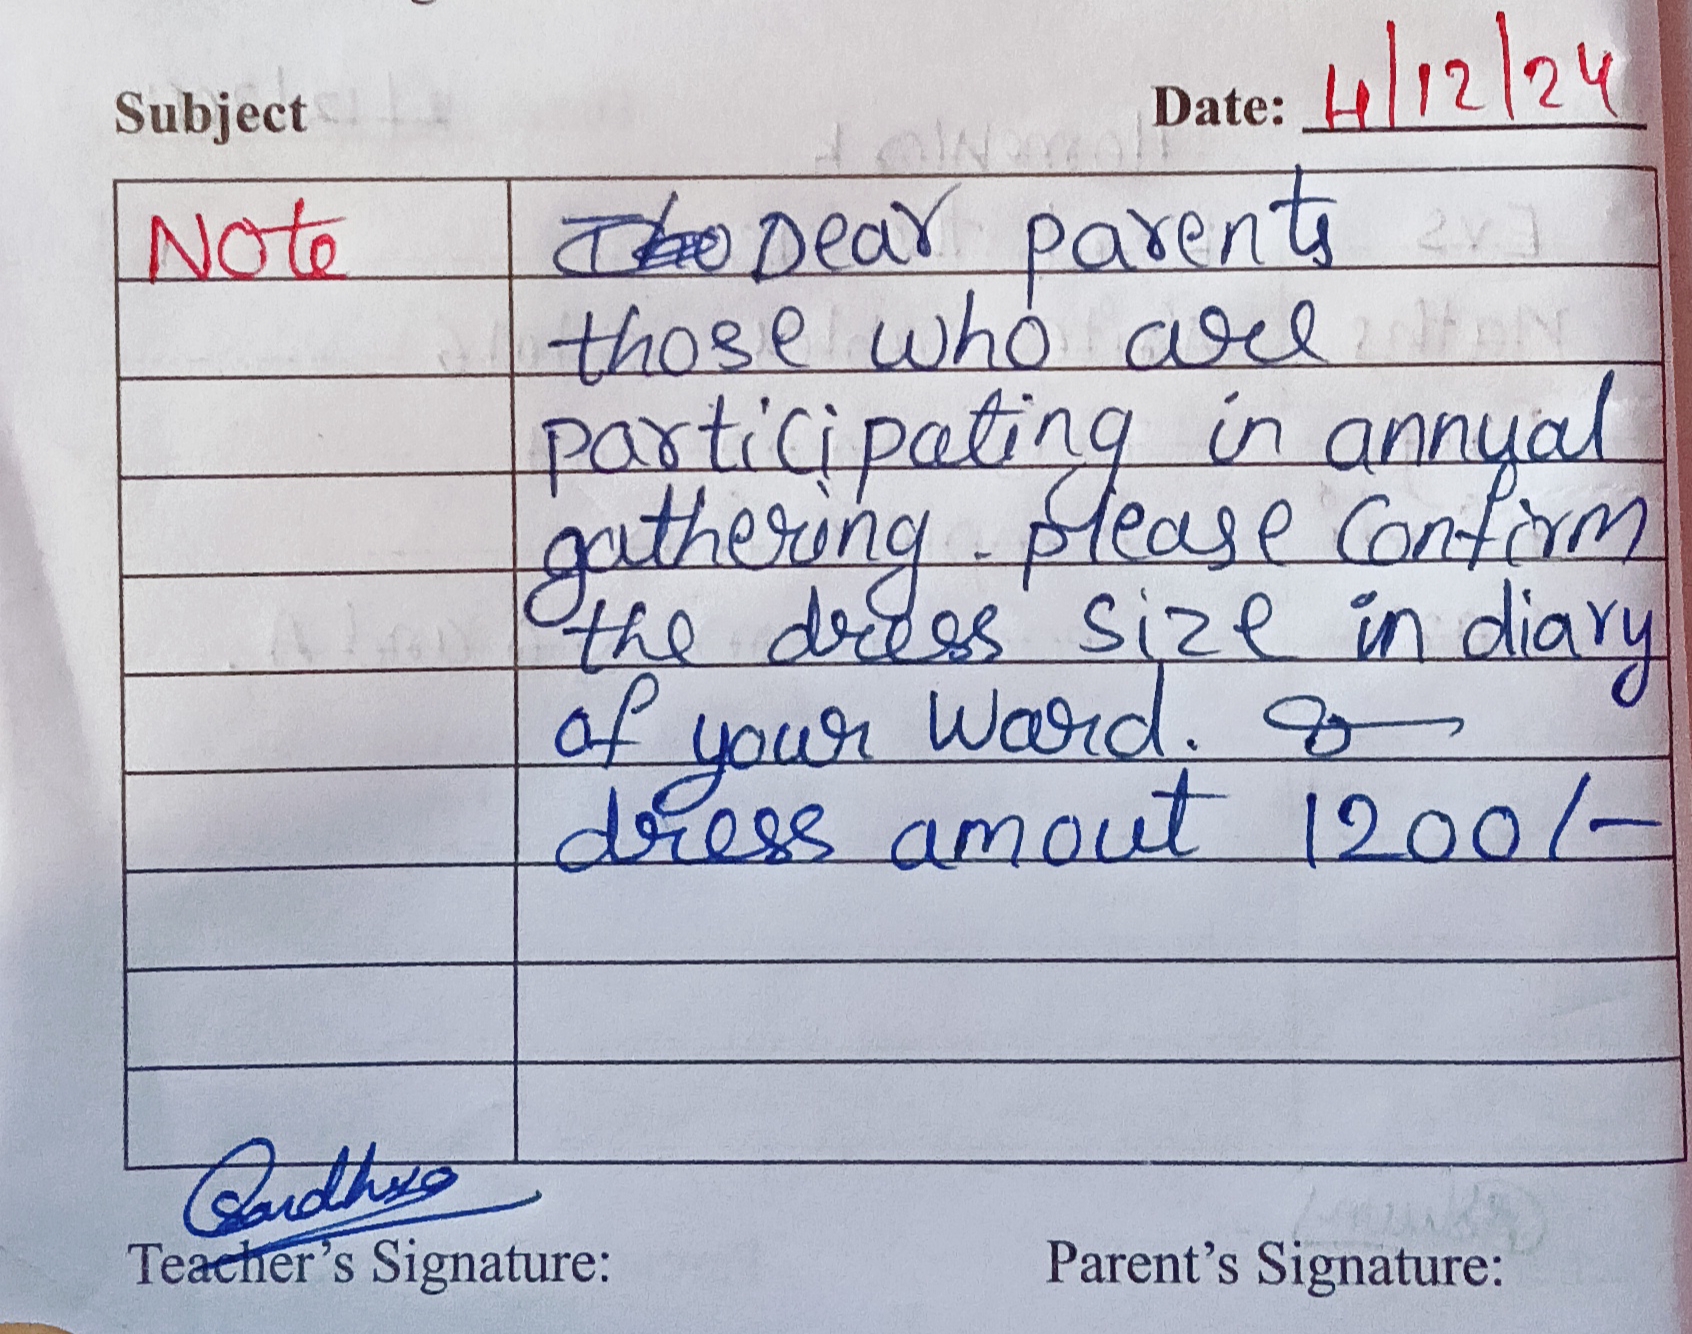 Subject Date: 4/12/24
Note Dear parents
those who are
participating in annual
gathering. please Confirm
the dress size in diary
of your Ward.
dress amout 1200/-
Teacher's Signature: Parent's Signature: